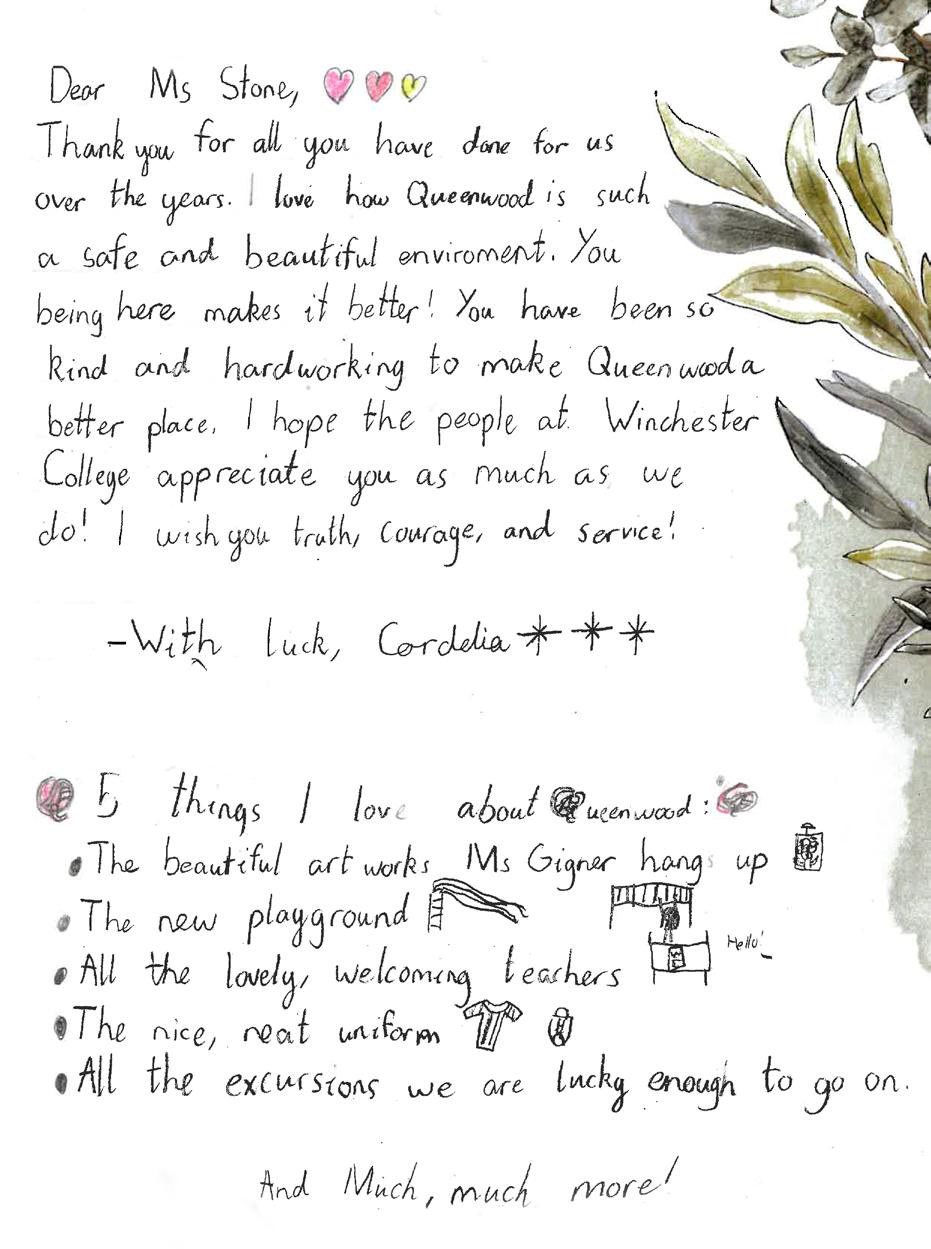 Dear Ms Stone,
Thank you for all you have done for us
over the years. I love how Queenwood is such
a safe and beautiful enviroment. You
being here makes it better! You have been so
kind and hardworking to make Queenwood a
better place. I hope the people at Winchester
College appreciate you as much as we
do! I wish you truth, courage, and service!
-With luck, Cordelia
5 things I love about Queenwood:
The beautiful art works Ms Gigner hangs up
The new playground
Hello!
All the lovely, welcoming teachers
The nice, neat uniform
All the excursions we are lucky enough to go on.
And Much, much more!